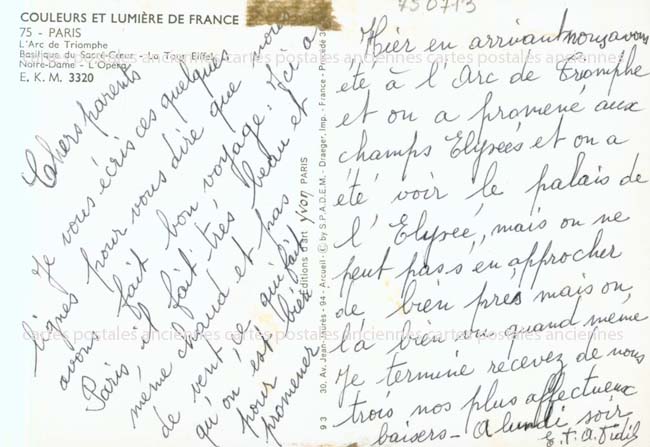 COULEURS ET LUMIÈRE DE FRANCE
75 - PARIS
L'Arc de Triomphe
Basilique du Sacré-Cœur - La Tour Eiffel
Notre-Dame - L'Opéra
E. K. M. 3320
750713
Cahers parents
Je vous écris ces quelques
lignes pour vous dire que nous
avons fait bon voyage. Ici a
Paris, il fait très beau et
même chaud et pas
de vent, ce qui fait
qu'on est bien
pour
promener
Éditions d'art yvon PARIS
9 3 30, Av. Jean-Jaurès - 94 - Arcueil - © by S.P.A.D.E.M. - Draeger, Imp. - France - Procédé 3
Hier en arrivant nous avons
été à l'Arc de Triomphe
et on a promené aux
champs Elysées et on a
été voir le palais de
l'Elysée, mais on ne
peut pas s'en approcher
de bien près mais on
l'a bien vu quand même
Je termine recevez de nous
trois nos plus affectueux
baisers - A lundi soir
cartes postales anciennes cartes postales anciennes cartes postales anciennes
cartes postales anciennes cartes postales anciennes cartes postales anciennes
cartes postales anciennes cartes postales anciennes cartes postales anciennes